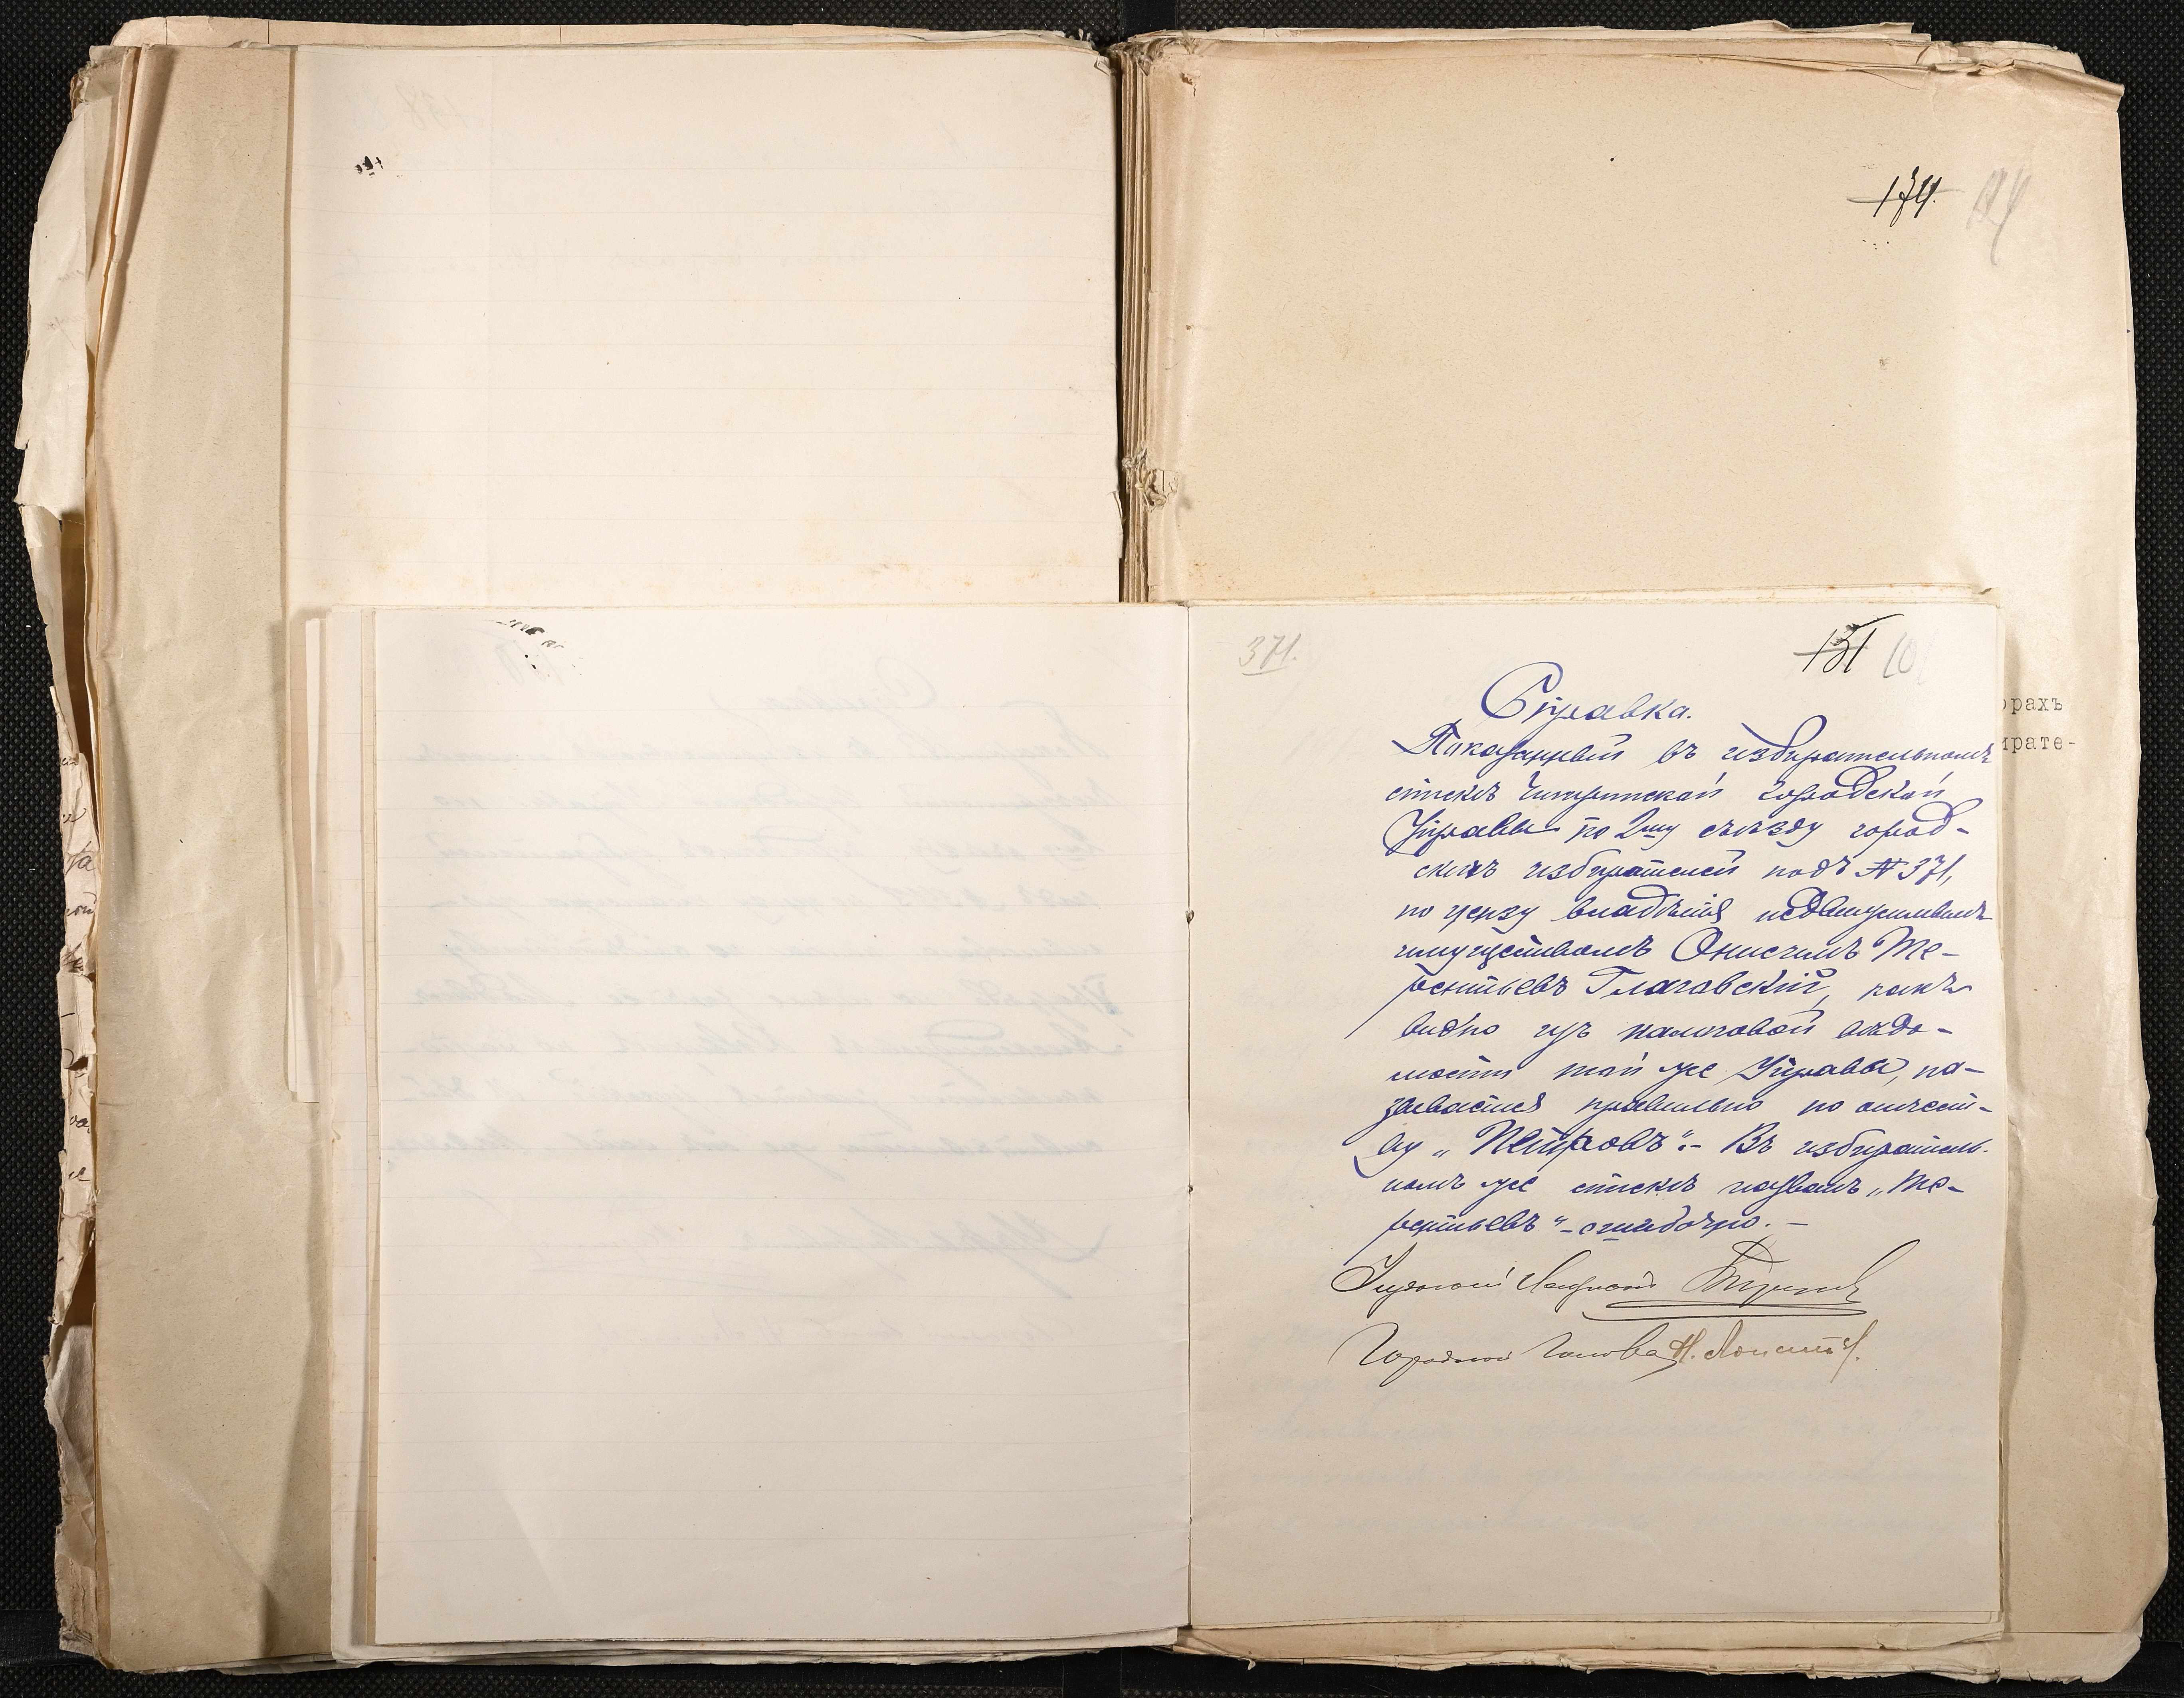 174.
371.
131
орахъ
ирате-
Справка.
Показанный въ избирательномъ
спискѣ Читинской Городской
Управы по 2му съѣзду город-
скихъ избирателей подъ № 371,
по цензу владѣнія недвижимымъ
имуществомъ Онисимъ Те-
рентьевъ Глаговскій, какъ
видно изъ налоговой вѣдо-
мости той же Управы, на-
зывается правильно по отчест-
ву „Петровъ“.- Въ избиратель-
номъ же спискѣ названъ „Те-
рентьевъ“ - ошибочно. -
Городской Голова Н.